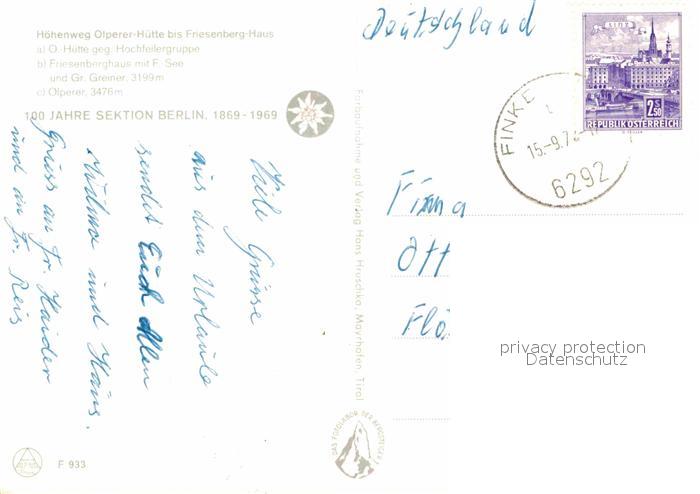 Höhenweg Olperer-Hütte bis Friesenberg-Haus
a) O.-Hütte geg. Hochfeilergruppe
b) Friesenberghaus mit F. See
und Gr. Greiner, 3199 m
c) Olperer, 3476 m
100 JAHRE SEKTION BERLIN, 1869-1969
Viele Grüsse
aus dem Urlaube
sendet Euch Allen
und Hans.
Gruss an Fr. Haider
und an Fr. Reis
F 933
Farbaufnahme und Verlag Hans Hruschka, Mayrhofen, Tirol
DAS FOTOLABOR DER BERGSTEIGER
Deutschland
LINZ
2.50
REPUBLIK ÖSTERREICH
FINKE
15.-9.7
6292
Firma
Ott
Flo
privacy protection
Datenschutz